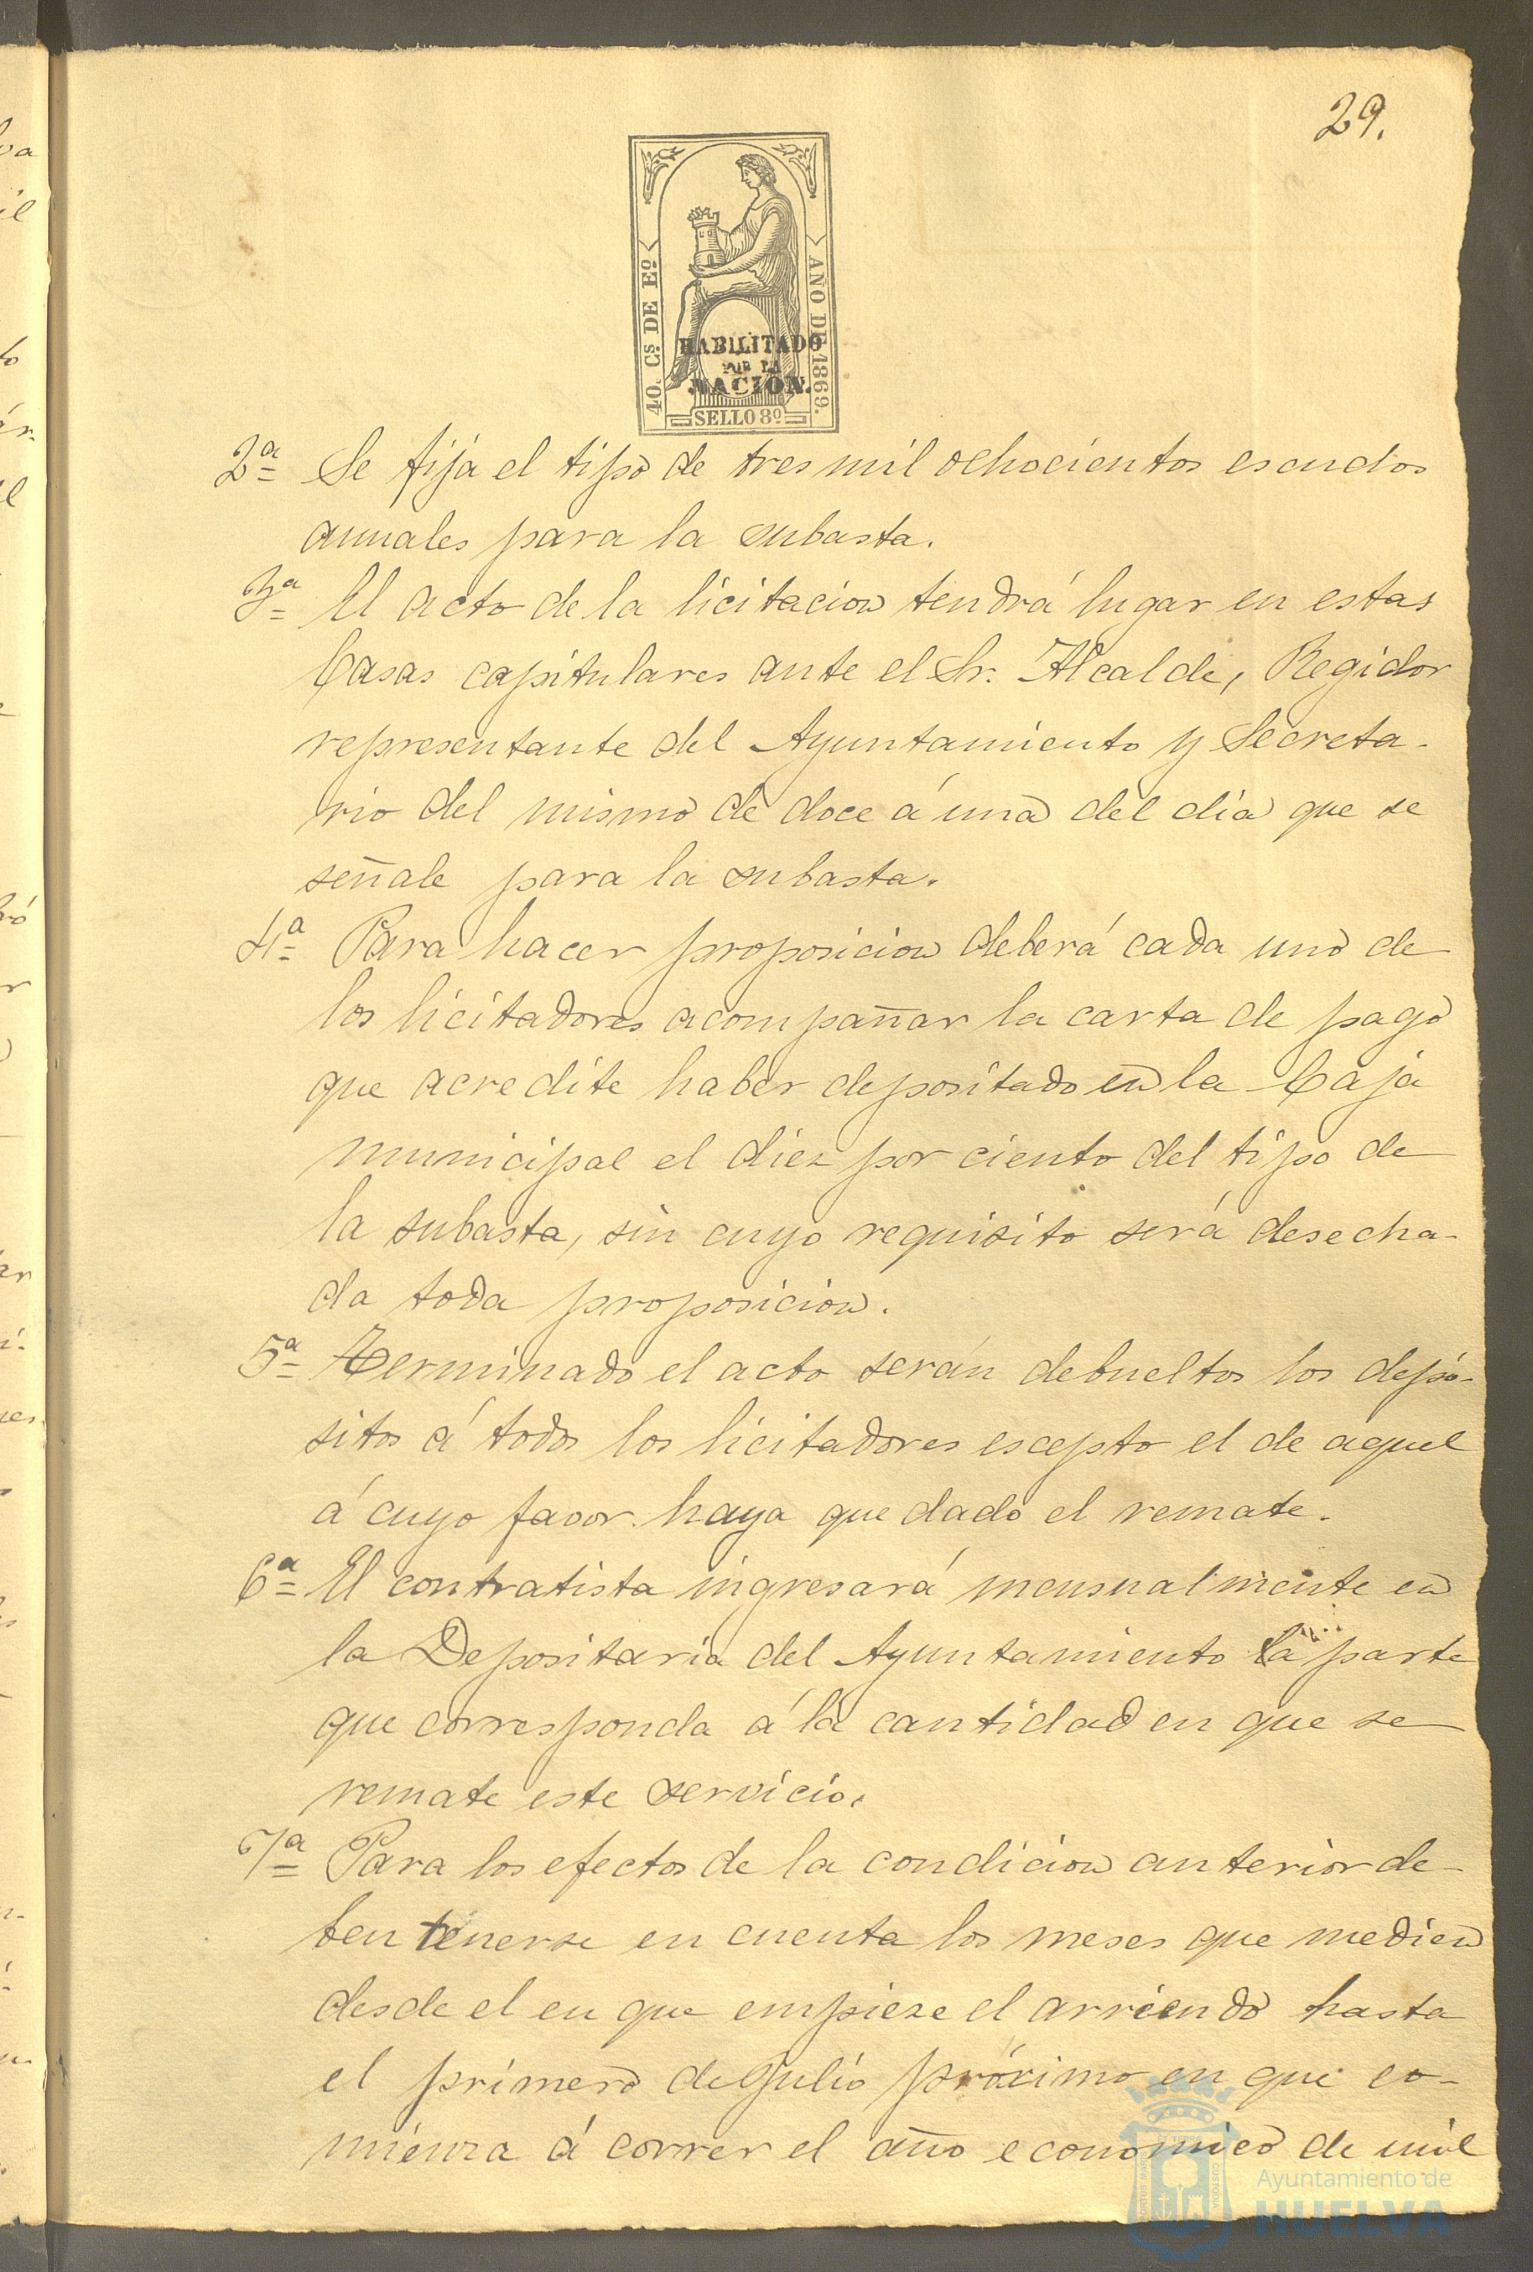 29.
40. Cs. DE Eº.
AÑO DE 1869.
HABILITADO
POR LA
NACION.
SELLO 8º
2ª Se fija el tipo de tres mil ochocientos escudos
anuales para la subasta.
3ª El acto de la licitacion tendrá lugar en estas
Casas capitulares ante el Sr. Alcalde, Regidor
representante del Ayuntamiento y Secreta-
rio del mismo de doce á una del dia que se
señale para la subasta.
4ª Para hacer proposicion deberá cada uno de
los licitadores acompañar la carta de pago
que acredite haber depositado en la Caja
municipal el diez por ciento del tipo de
la subasta, sin cuyo requisito será desecha-
da toda proposicion.
5ª Terminado el acto serán debueltos los depó-
sitos á todos los licitadores escepto el de aquel
á cuyo favor haya quedado el remate.
6ª El contratista ingresará mensualmente en
la Depositaria del Ayuntamiento la parte
que corresponda á la cantidad en que se
remate este servicio.
7ª Para los efectos de la condicion anterior de-
ben tenerse en cuenta los meses que medien
desde el en que empieze el arriendo hasta
el primero de Julio próximo en que co-
mienza á correr el año economico de mil
Ayuntamiento de
HUELVA